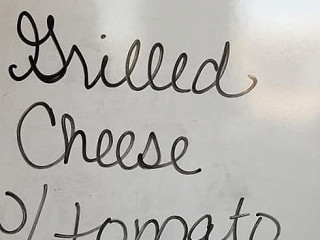 Grilled
Cheese
w/ tomato